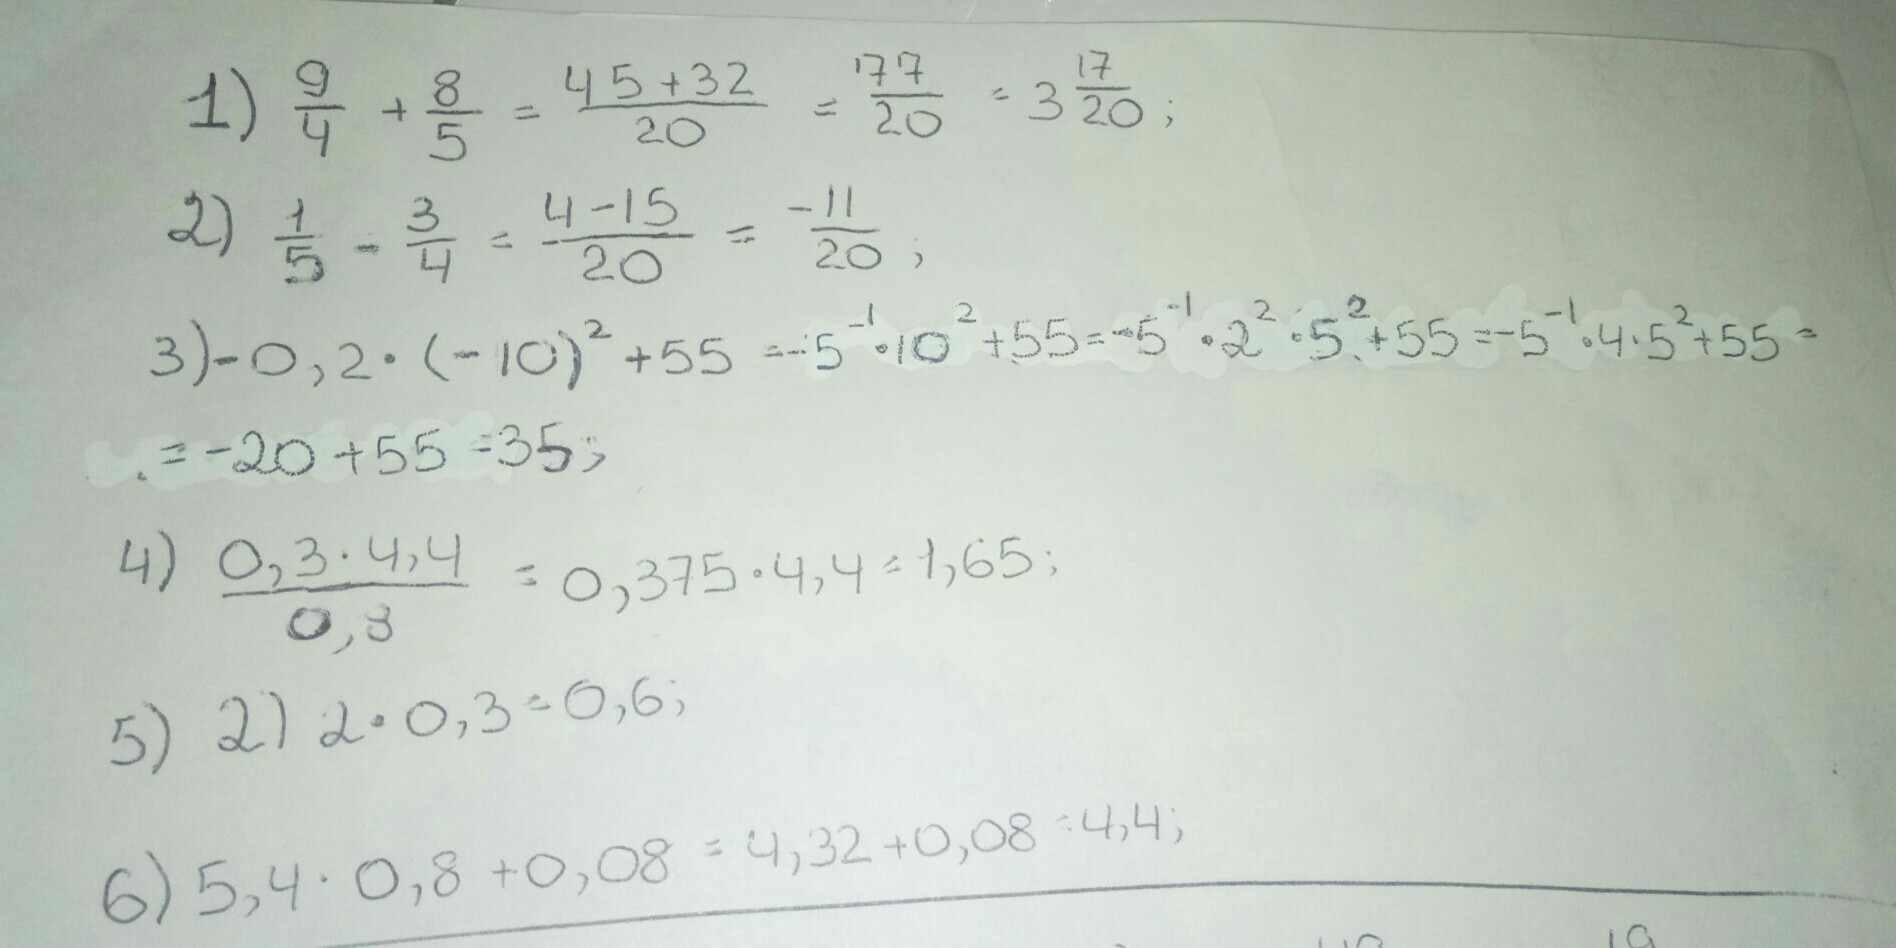 1) 9/4 + 8/5 = 45+32/20 = 77/20 = 3 17/20;
2) 1/5 - 3/4 = 4-15/20 = -11/20;
3) -0,2·(-10)² +55 = -5⁻¹·10²+55 = -5⁻¹·2²·5²+55 = -5⁻¹·4·5²+55 =
= -20+55 = 35;
4) 0,3·4,4/0,8 = 0,375·4,4 = 1,65;
5) 2) 2·0,3 = 0,6;
6) 5,4·0,8+0,08 = 4,32+0,08 = 4,4;